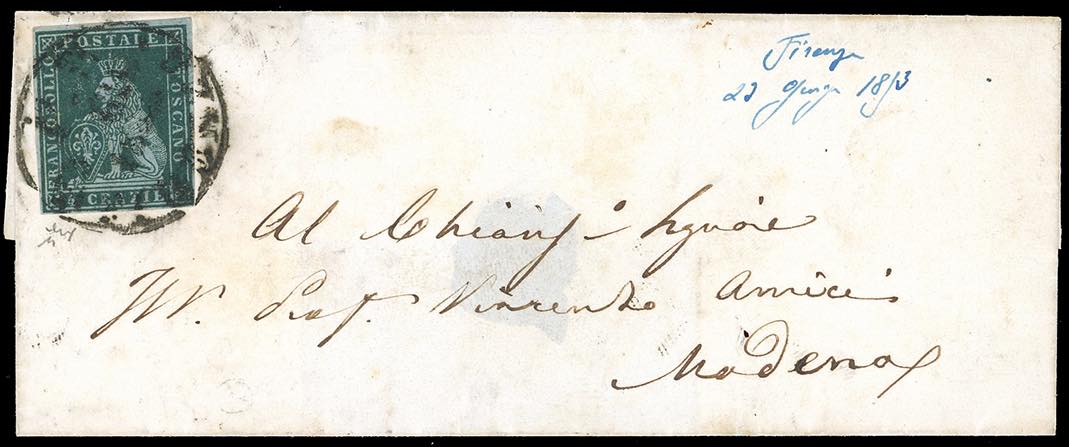 FRANCOBOLLO
POSTALE
TOSCANO
4 CRAZIE
Firenze
23 1853
Al Chiarịs.º Signore
Prof. Vincenzo Amici
Modena